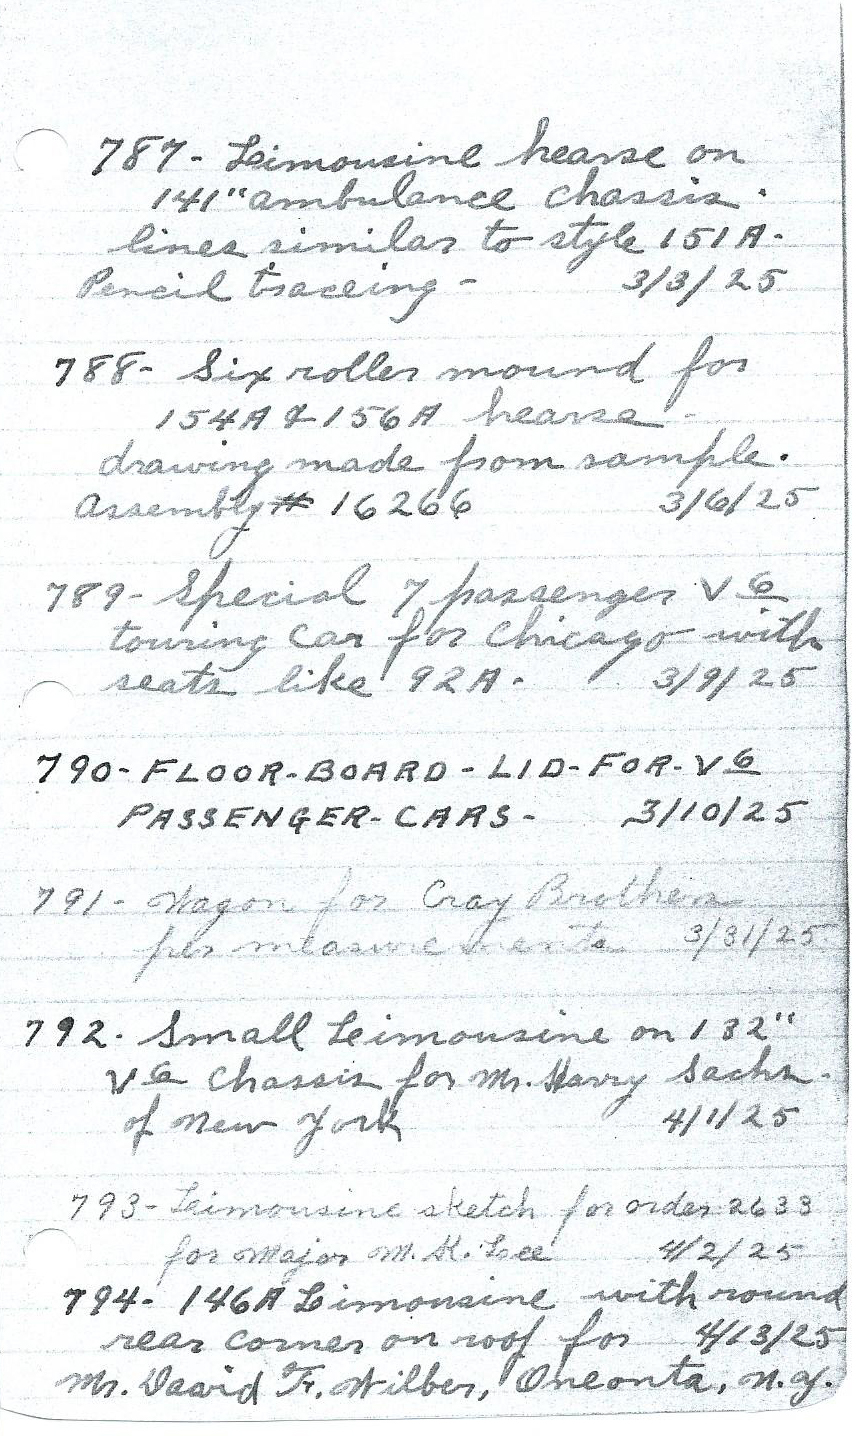 787- Limousine hearse on
141" ambulance chassis.
lines similar to style 151A-
Pencil traceing - 3/3/25
788- Six roller mound for
154A & 156A hearse -
drawing made from sample.
Assembly # 16266 3/6/25
789- Special 7 passenger V6
touring car for Chicago with
seats like 92A. 3/9/25
790-FLOOR-BOARD-LID-FOR-V6
PASSENGER-CARS- 3/10/25
791- Wagon for Cray Brothers
per measurements 3/31/25
792. Small Limousine on 132"
V6 Chassis for Mr. Harry Sachs -
of New York 4/1/25
793- Limousine sketch for order 2633
for Major M. K. Lee 4/2/25
794- 146A Limousine with round
rear corner on roof for 4/13/25
Mr. David F. Wilber, Oneonta, N.Y.